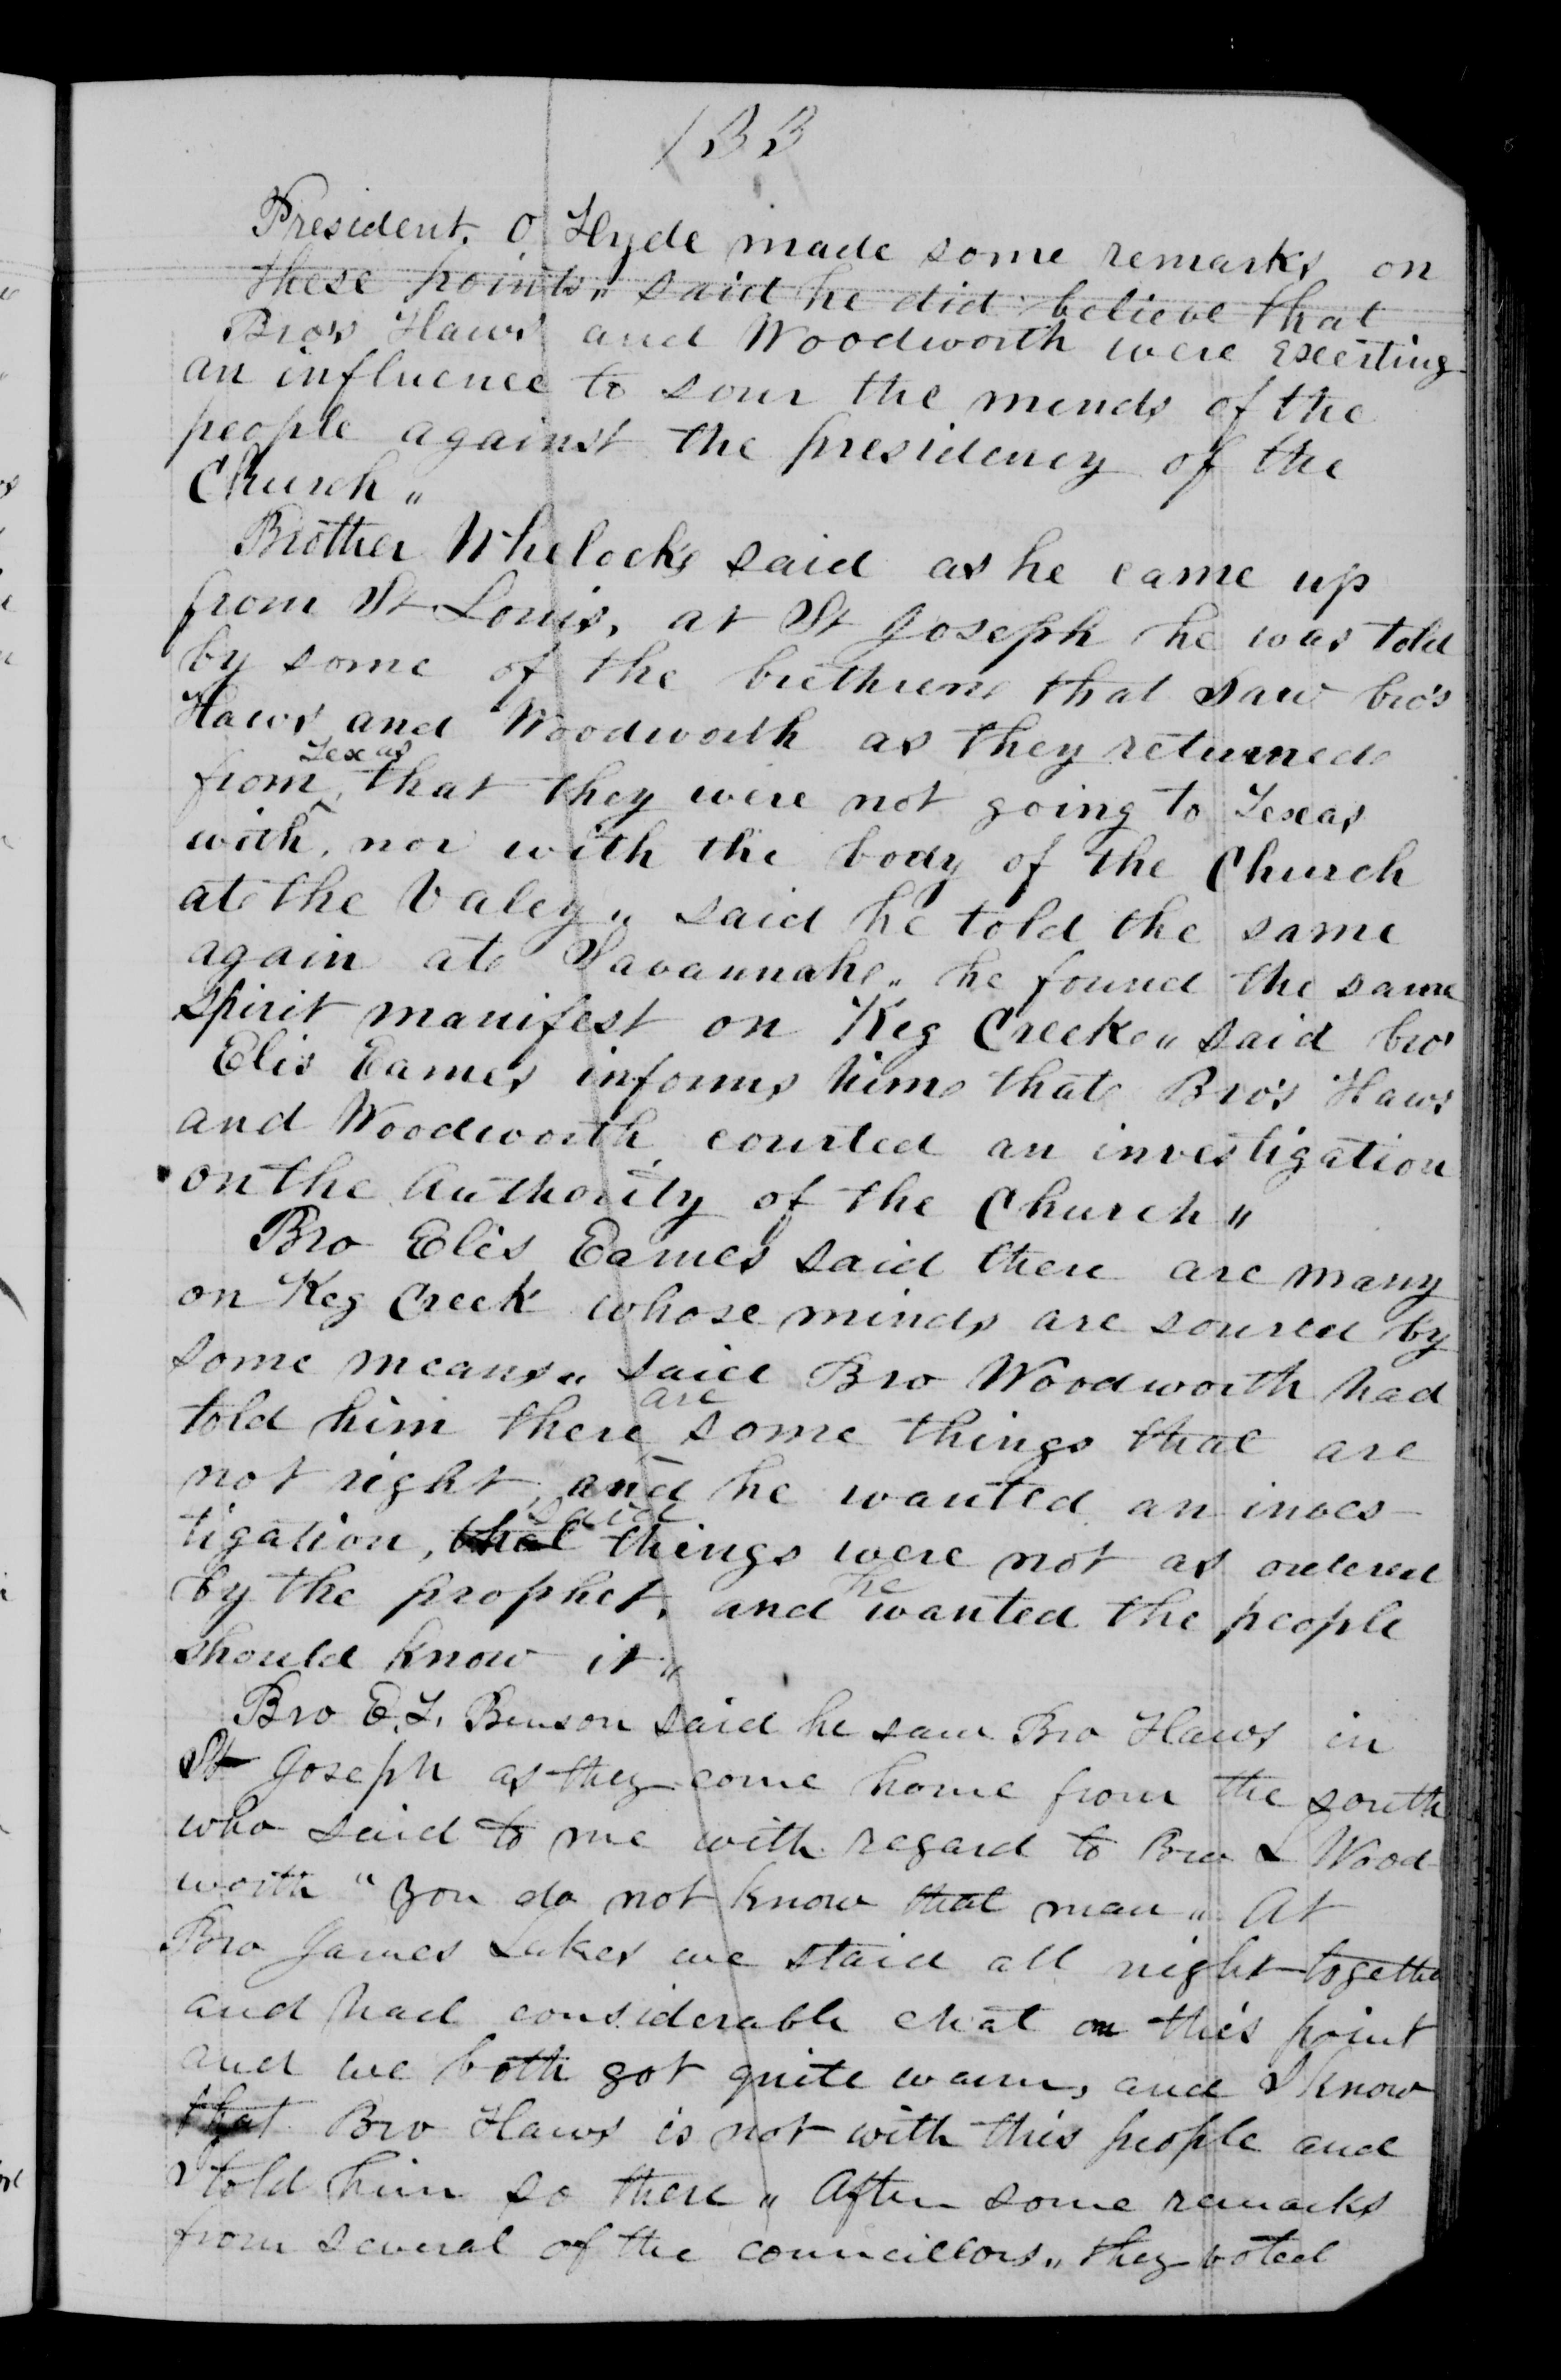 133
President. O Hyde made some remarks on
these points,, said he did believe that
Bro's Haws and Woodworth were exerting
an influence to sour the minds of the
people against the presidency of the
Church ,,
Brother Whelock's said as he came up
from St Louis, at St Joseph he was told
by some of the brethren that saw bro's
Haws and Woodworth as they returned
from ^Texas, that they were not going to Texas
with, nor with the body of the Church
at the Valey,, said he told the same
again at Savannah,, he found the same
spirit manifest on Keg Creek,, said bro'
Elis Eames informs him that Bro's Haws
and Woodworth courted an investigation
on the Authority of the Church ,,
Bro Elis Eames said there are many
on Keg Creek whose minds are soured by
some means,, said Bro Woodworth had
told him there are some things that are
not right, and he wanted an inves-
tigation, that said things were not as ordered
by the prophet, and he wanted the people
should know it ,,
Bro E. T. Benson said he saw Bro Haws in
St Joseph as they come home from the south
who said to me with regard to Bro L Wood-
worth "you do not know that man ,, At
Bro James Lakes we staid all night together
and had considerable chat on this point
and we both got quite warm, and I know
that Bro Haws is not with this people and
I told him so there ,, After some remarks
from several of the councillors,, they voted